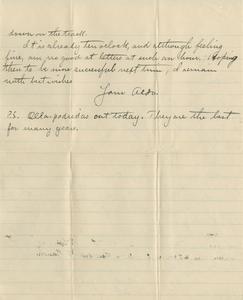 down on the track.
It is already ten o'clock, and although feeling
fine, am no good at letters at such an hour. Hoping
then to be more sucessful next time, I remain
with best wishes
Your Aldo.
P.S. Olla-podridas out today. They are the best
for many years.